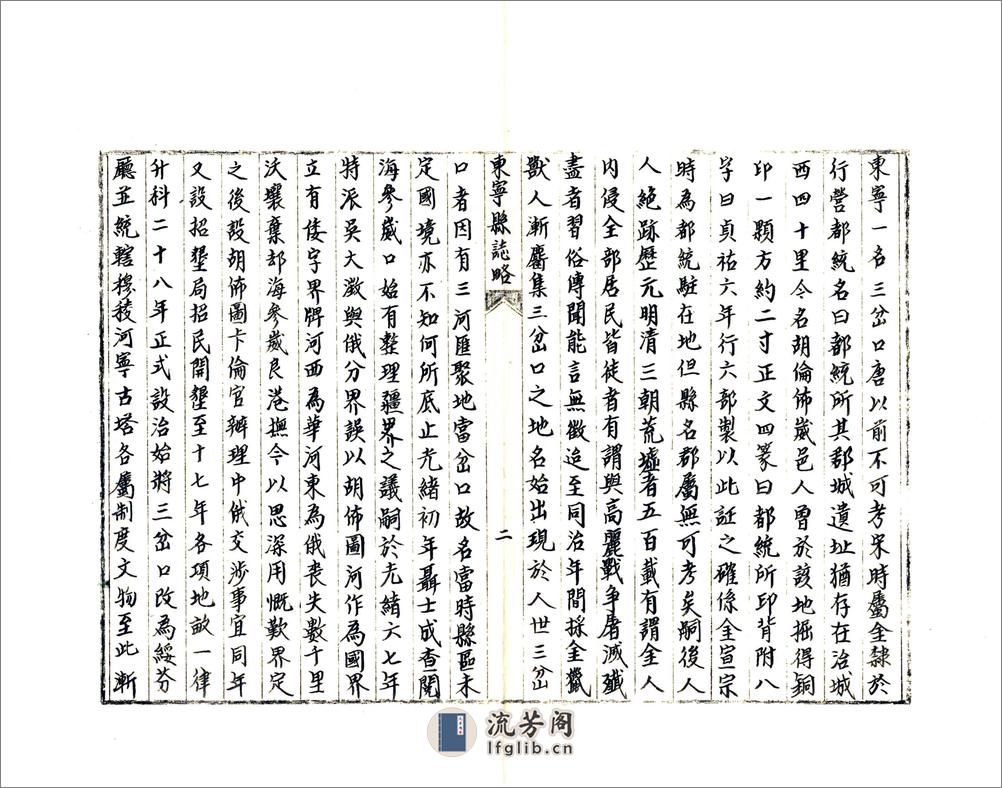 東寧一名三岔口唐以前不可考宋時屬金隸於
行營都統名曰都統所其郡城遺址猶存在治城
西四十里今名胡倫佈崴邑人曾於該地掘得銅
印一顆方約二寸正文四篆曰都統所印背附八
字曰貞祐六年行六部製以此証之確係金宣宗
時為都統駐在地但縣名郡屬無可考矣嗣後人
人絕跡歷元明清三朝荒墟者五百載有謂金人
内侵全部居民皆徒者有謂與高麗戰争屠滅殲
盡者習俗傳聞能言無徵迨至同治年間採金獵
獸人漸屬集三岔口之地名始出現於人世三岔
東寧縣誌略
二
口者因有三河匯聚地當岔口故名當時縣區未
定國境亦不知何所底止光緒初年聶士成查閱
海參崴口始有整理疆界之議嗣於光緒六七年
特派吳大澂與俄分界誤以胡佈圖河作為國界
立有倭字界牌河西為華河東為俄喪失數千里
沃壤棄却海參崴良港撫今以思深用慨歎界定
之後設胡佈圖卡倫官辦理中俄交涉事宜同年
又設招墾局招民開墾至十七年各項地畝一律
升科二十八年正式設治始將三岔口改為綏芬
廳並統轄穆稜河寧古塔各屬制度文物至此漸
流芳阁
lfglib.cn